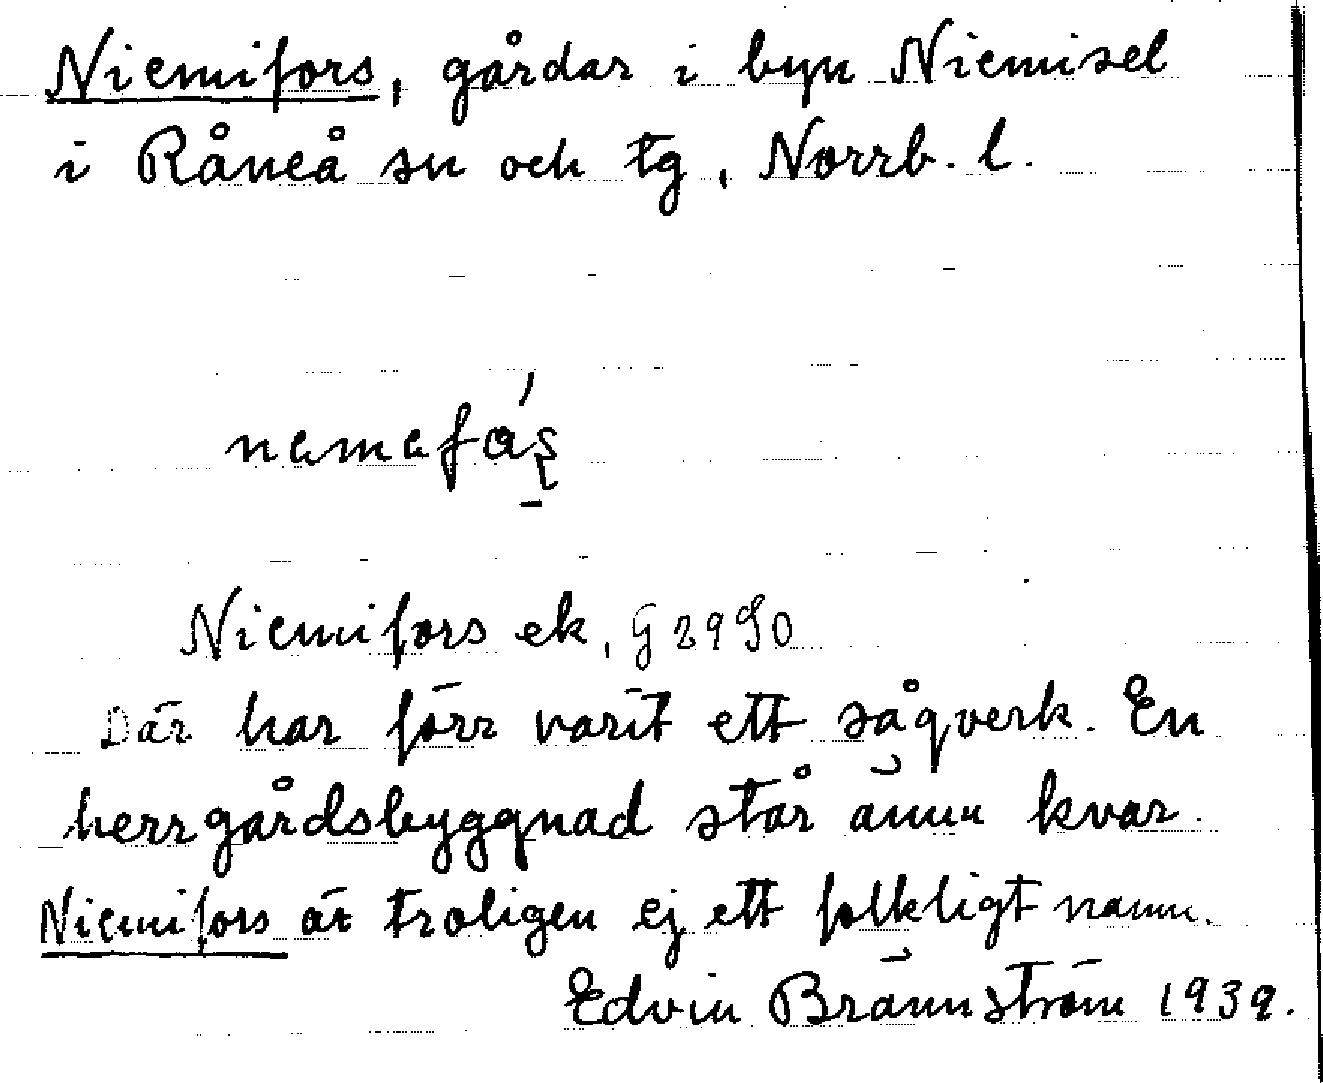 Niemifors, gårdar i byn Niemisel
i Råneå sn och tg, Norrb. l.
Niemifors ek, G 2990
Där har förr varit ett sågverk. En
herrgårdsbyggnad står ännu kvar.
Niemifors är troligen ej ett folkligt namn.
Edvin Brännström 1939.